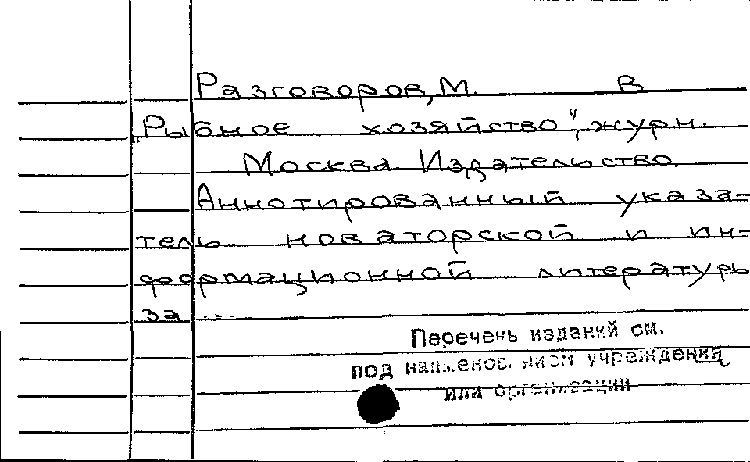 Разговоров, М. В
„Рыбное хозяйство", журн.
Москва. Издательство.
Аннотированный указа-
тель новаторской и ин-
формационной литературы
за ...
Перечень изданий см.
под наименованием учреждения
или организации